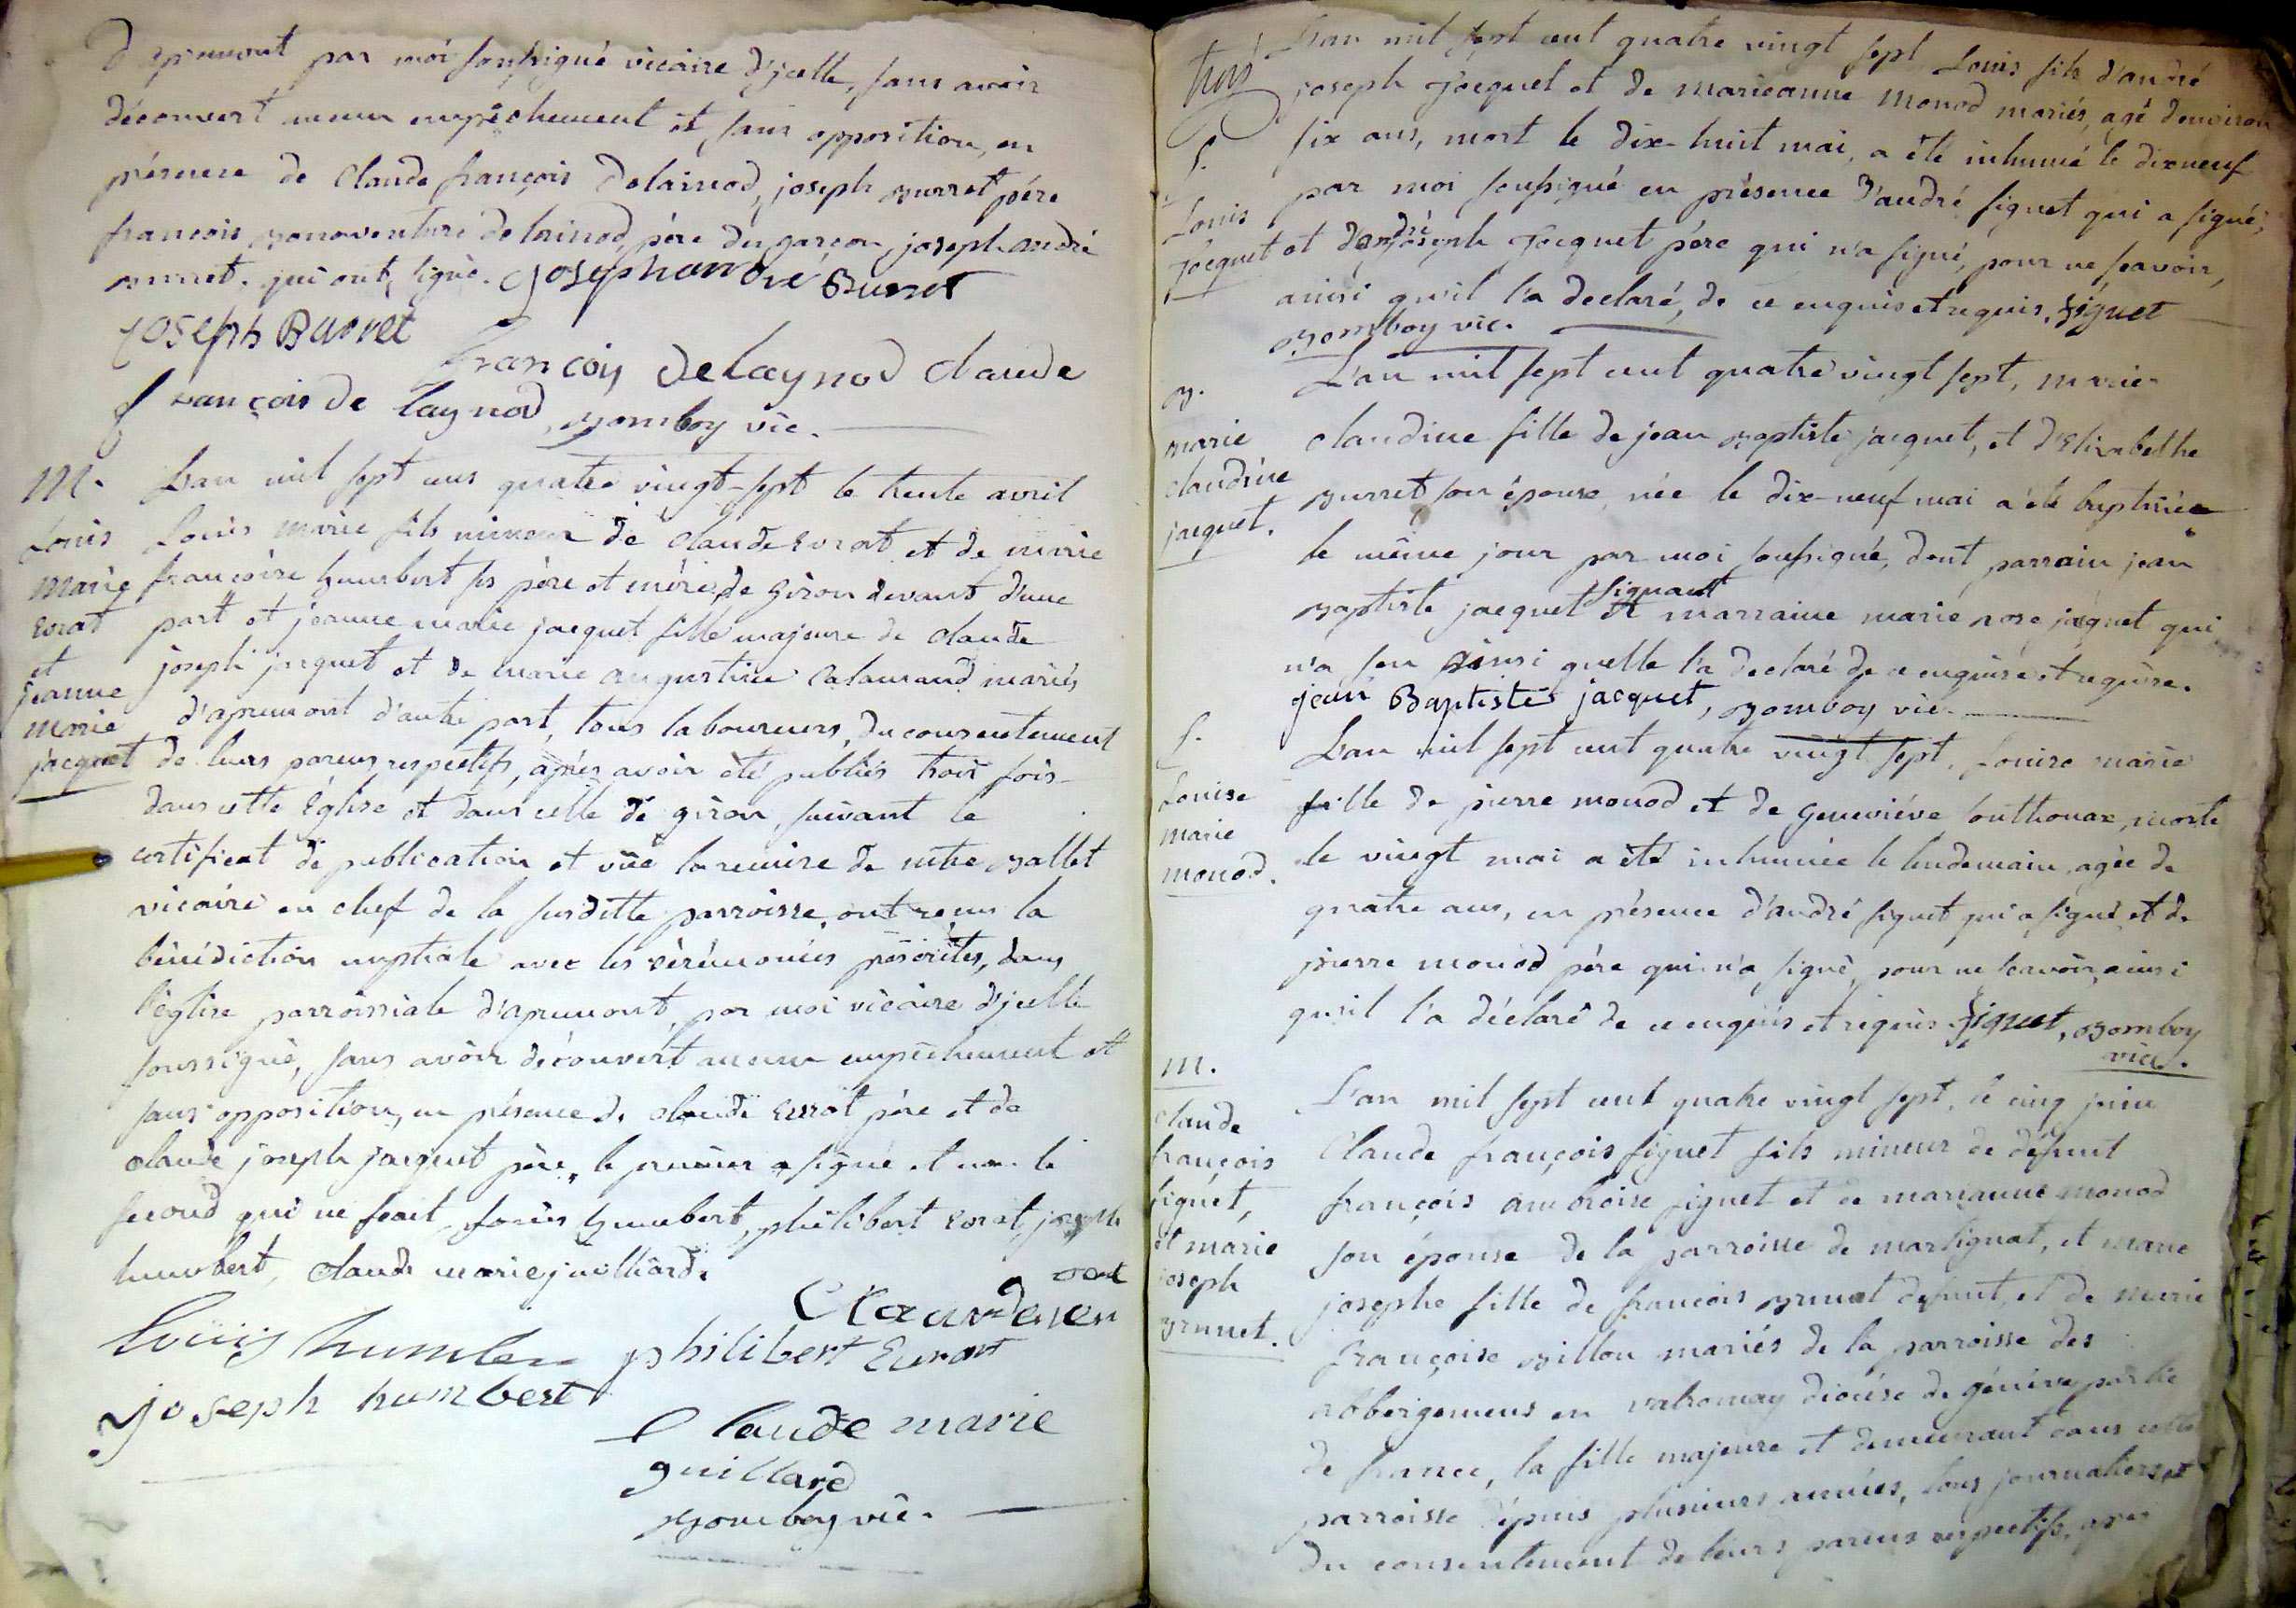 d'apremont par moi soussigné vicaire d'jcelle, sans avoir
découvert aucun empêchement et sans opposition, en
présence de Claude françois Delainod, joseph burret père
francois bonaventure delainod père du garçon, joseph andré
burret. qui ont signé. Joseph andré Burret
Joseph Burret
francoiy Delaynod claude
françois De laynod, bomboy vic.
M.
Louis
Marie
Evrat
et
jeanne
Marie
jacquet
L'an mil sept cens quatre vingt-sept le trente avril
Louis Marie fils mineur de Claude Evrat et de marie
françoise humbert ses père et mère, de Giron devant d'une
part et jeanne marie jacquet fille majeure de claude
joseph jacquet et de marie augustine Calamand mariés
d'apremont d'autre part, tous laboureurs, du consentement
de leurs parens respectifs, après avoir été publiés trois fois
dans cette Eglise et dans celle de giron, suivant le
certificat de publication et vüe la remise de mtre ballet
vicaire en chef de la susditte parroisse, ont reçus la
bénédiction nuptiale avec les cérémonies préscrites, dans
l'église parroissiale d'apremont, par moi vicaire d'jcelle
soussigné, sans avoir découvert aucun empêchement et
sans opposition, en présence de claude Evrat père et de
claude joseph jacquet père, le premier a signé et non le
second qui ne scait, Louis humbert, philibert Evrat, joseph
humbert, claude marie juilliard.
Claude
Louis humber philibert Evrat
Joseph humbert
Claude marie
guillard
bomboy vic.
S.
Louis
Jacquet
L'an mil sept cent quatre vingt sept Louis fils d'andré
joseph Jacquet et de marieanne Monod mariés, agé d'environ
six ans, mort le dix-huit mai, a été inhumé le dixneuf
par moi soussigné en présence d'andré figuet qui a signé,
et d'andré joseph Jacquet père qui n'a signé, pour ne scavoir,
ainsi qu'il l'a declaré, de ce enquis et requis. figuet
bomboy vic.
B.
marie
claudine
jacquet.
L'an mil sept cent quatre vingt sept, marie
claudine fille de jean baptiste jacquet, et d'Elizabethe
burret son épouse, née le dix-neuf mai a été baptisée
le même jour par moi soussigné, dont parrain jean
baptiste jacquet signant et marraine marie rose jacquet qui
n'a sçu ainsi qu'elle l'a declaré de ce enquise et requise.
jean Baptiste jacquet, bomboy vic.
S.
Louise
marie
monod.
L'an mil sept cent quatre vingt sept, Louise marie
fille de pierre monod et de Geneviéve Outhouax, morte
le vingt mai a été inhumée le lendemain, agée de
quatre ans, en présence d'andré figuet qui a signé et de
pierre monod père qui n'a signé, pour ne scavoir, ainsi
qu'il l'a déclaré de ce enquis et requis. figuet, bomboy
vic.
m.
claude
françois
figuet,
et marie
joseph
brunet.
L'an mil sept cent quatre vingt sept, le cinq juin
Claude françois figuet fils mineur de défunt
françois ambroise figuet et de marianne monod
son épouse de la parroisse de martignat, et marie
josephe fille de françois brunet defunt, et de marie
françoise billon mariés de la parroisse des
abbergemens en valromay diocèse de génève partie
de france, la fille majeure et demeurant dans cette
parroisse depuis plusieurs années, tous journaliers, et
du consentement de leurs parens respectifs, après